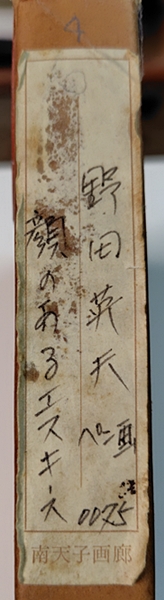 野田英夫 ペン画
顔のあるエスキース
0075
南天子画廊